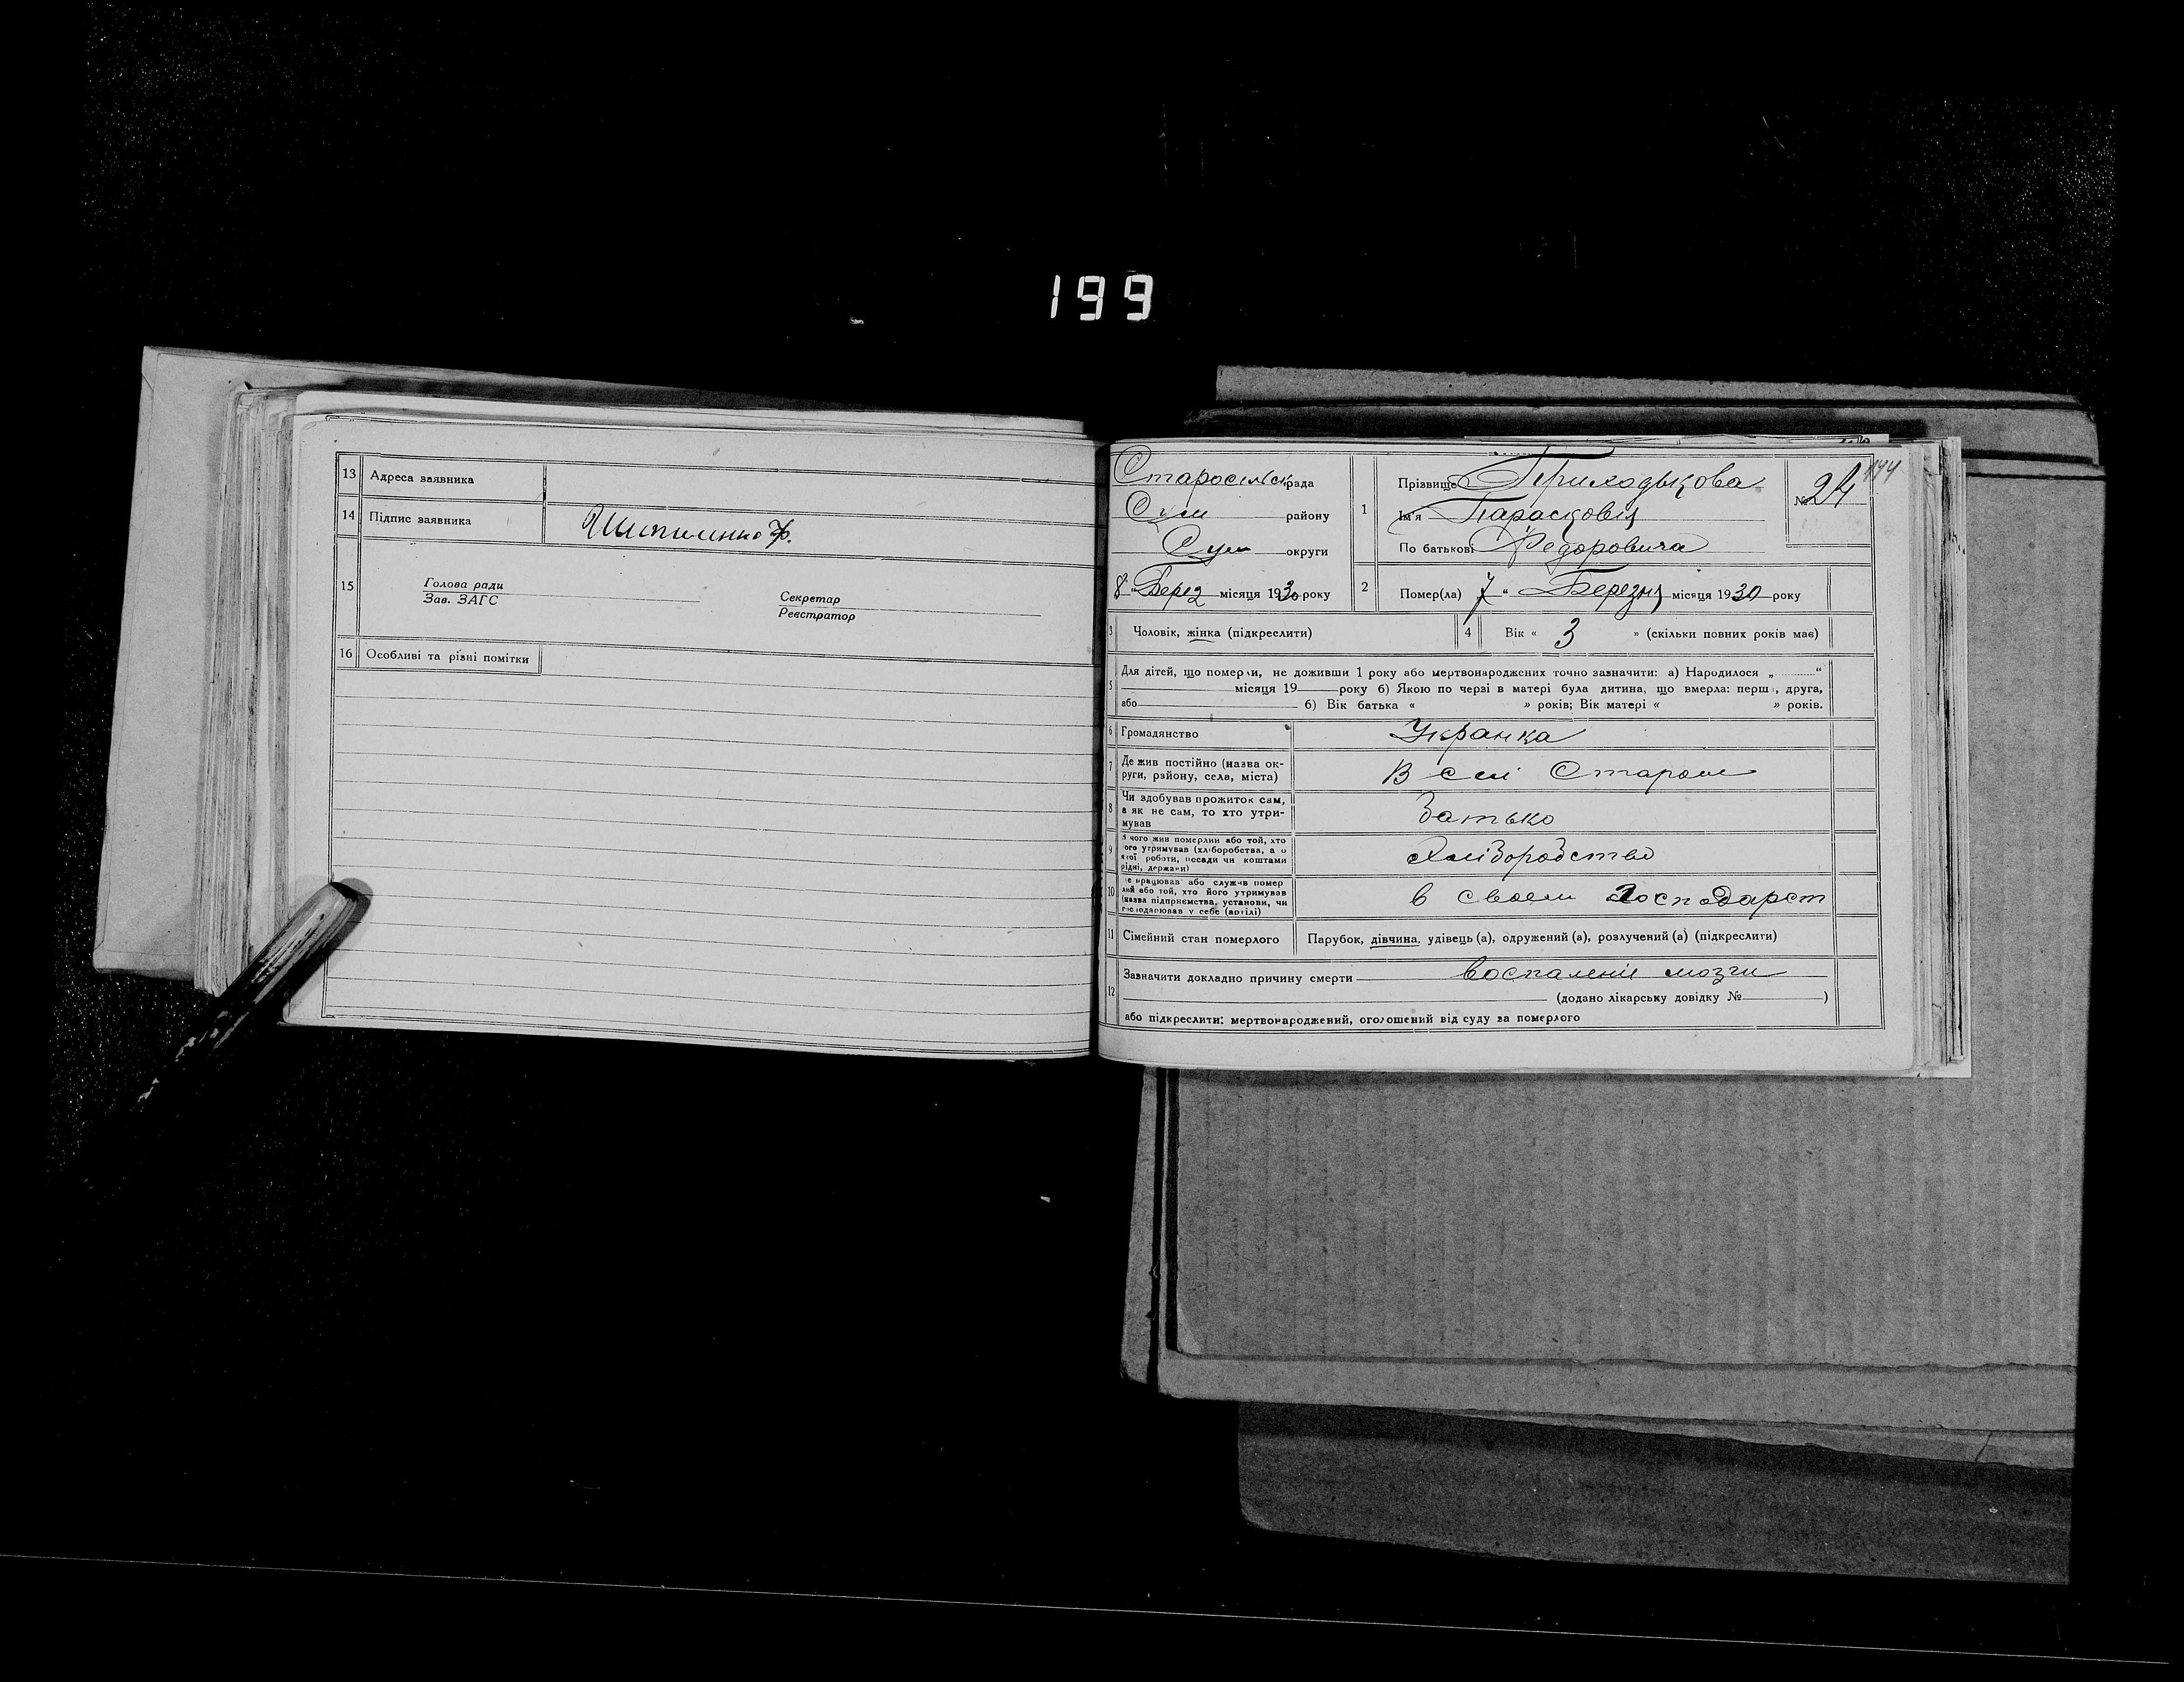 199
13 Адреса заявника
14 Підпис заявника
15 Голова ради
Зав. ЗАГС
Секретар
Реєстратор
16 Особливі та різні помітки
Старосільск рада
Сум району
Сум округи
8 „ Берез місяця 1930 року
1 Прізвище Приходькова
Ім'я Парасковія
По батькові Федоровича
№ 24
2 Помер(ла) 7 „ Березня місяця 1930 року
3 Чоловік, жінка (підкреслити)
4 Вік « 3 » (скільки повних років має)
5 Для дітей, що померли, не доживши 1 року або мертвонароджених точно зазначити: а) Народилося „ “
місяця 19 року б) Якою по черзі в матері була дитина, що вмерла: перша, друга,
або б) Вік батька « » років; Вік матері « » років.
6 Громадянство Укранка
7 Де жив постійно (назва ок-
руги, району, села, міста)
В селі Старом
8 Чи здобував прожиток сам,
а як не сам, то хто утри-
мував
Батько
9 З чого жив померлий або той, хто
його утримував (хліборобства, а о
якої роботи, посади чи коштами
рідні, держави)
Хліборобство
10 Де працював або служив помер
лий або той, хто його утримував
(назва підприємства, установи, чи
господарював у себе (артілі)
в своем господарст
11 Сімейний стан померлого Парубок, дівчина, удівець (а), одружений (а), розлучений (а) (підкреслити)
12 Зазначити докладно причину смерти воспаленіе мозги
(додано лікарську довідку № )
або підкреслити: мертвонароджений, оголошений від суду за померлого